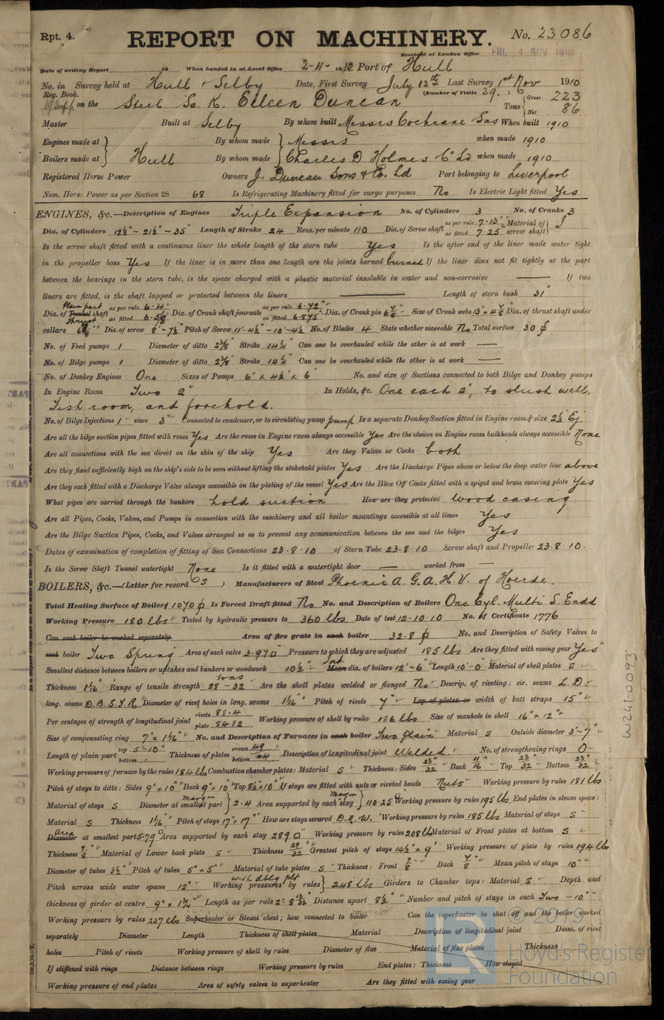 Rpt. 4.
REPORT ON MACHINERY.
No. 23086
Received at London Office FRI. 4 NOV 1910
Date of writing Report 19 When handed in at Local Office 2-11-1910 Port of Hull
No. in Survey held at Hull & Selby Date, First Survey July 12th Last Survey 1st Nov 1910
Reg. Book. (Number of Visits 29.)
on the Steel S. K. Eileen Duncan Tons Gross 223 Net 86
Master Built at Selby By whom built Messrs Cochrane & Sons When built 1910
Engines made at By whom made Messrs when made 1910
Boilers made at Hull By whom made Charles D Holmes & Co Ld when made 1910
Registered Horse Power Owners J. Duncan Sons & Co. Ld Port belonging to Liverpool
Nom. Horse Power as per Section 28 68 Is Refrigerating Machinery fitted for cargo purposes No Is Electric Light fitted Yes
ENGINES, &c.—Description of Engines Triple Expansion No. of Cylinders 3 No. of Cranks 3
Dia. of Cylinders 12½"-21½"-35" Length of Stroke 24 Revs. per minute 110 Dia. of Screw shaft as per rule 7.13" as fitted 7.25" Material of screw shaft
Is the screw shaft fitted with a continuous liner the whole length of the stern tube Yes Is the after end of the liner made water tight
in the propeller boss Yes If the liner is in more than one length are the joints burned burned If the liner does not fit tightly at the part
between the bearings in the stern tube, is the space charged with a plastic material insoluble in water and non-corrosive — If two
liners are fitted, is the shaft lapped or protected between the liners — Length of stern bush 31"
Dia. of Tunnel shaft as per rule 6.4" as fitted Dia. of Crank shaft journals as per rule 6.72" as fitted 6.875" Dia. of Crank pin Size of Crank webs Dia. of thrust shaft under
collars Dia. of screw 8'-7½ Pitch of Screw No. of Blades 4 State whether moveable No Total surface 30
No. of Feed pumps 1 Diameter of ditto Stroke 14½" Can one be overhauled while the other is at work —
No. of Bilge pumps 1 Diameter of ditto Stroke 14½" Can one be overhauled while the other is at work —
No. of Donkey Engines One Sizes of Pumps 6" x 4½" x 6" No. and size of Suctions connected to both Bilge and Donkey pumps
In Engine Room Two 2" In Holds, &c. One each 2", to slush well,
Fish room, and forehold.
No. of Bilge Injections 1 sizes 3" Connected to condenser, or to circulating pump pump Is a separate Donkey Suction fitted in Engine room & size
Are all the bilge suction pipes fitted with roses Yes Are the roses in Engine room always accessible Yes Are the sluices on Engine room bulkheads always accessible None
Are all connections with the sea direct on the skin of the ship Yes Are they Valves or Cocks both
Are they fixed sufficiently high on the ship's side to be seen without lifting the stokehold plates Yes Are the Discharge Pipes above or below the deep water line above
Are they each fitted with a Discharge Valve always accessible on the plating of the vessel Yes Are the Blow Off Cocks fitted with a spigot and brass covering plate Yes
What pipes are carried through the bunkers hold suction How are they protected wood casing
Are all Pipes, Cocks, Valves, and Pumps in connection with the machinery and all boiler mountings accessible at all times Yes
Are the Bilge Suction Pipes, Cocks, and Valves arranged so as to prevent any communication between the sea and the bilges Yes
Dates of examination of completion of fitting of Sea Connections 23.8.10 of Stern Tube 23.8.10 Screw shaft and Propeller 23.8.10.
Is the Screw Shaft Tunnel watertight None Is it fitted with a watertight door — worked from —
BOILERS, &c.—(Letter for record S) Manufacturers of Steel Phoenix A.G. A.H.V. of Hoerde.
Total Heating Surface of Boilers 1070 Is Forced Draft fitted No No. and Description of Boilers One Cyl. Multi S. Endd
Working Pressure 180 lbs Tested by hydraulic pressure to 360 lbs Date of test 12.10.10 No. of Certificate 1776
Can each boiler be worked separately Area of fire grate in each boiler 32.8 No. and Description of Safety Valves to
each boiler Two Spring Area of each valve 3.97 Pressure to which they are adjusted 185 lbs Are they fitted with easing gear Yes
Smallest distance between boilers or uptakes and bunkers or woodwork 10½" Mean dia. of boilers 12'-6" Length 10'-0" Material of shell plates S
Thickness 1 1/16" Range of tensile strength 28-32 tons Are the shell plates welded or flanged No Descrip. of riveting: cir. seams L D
long. seams D.B.S.T.R. Diameter of rivet holes in long. seams 1 1/16" Pitch of rivets 7" Lap of plates or width of butt straps 15"
Per centages of strength of longitudinal joint rivets 88.4 plate 84.82 Working pressure of shell by rules 186 lbs Size of manhole in shell 16" x 12"
Size of compensating ring No. and Description of Furnaces in each boiler Two Plain Material S Outside diameter 3'-7"
Length of plain part top 5'-10" bottom Thickness of plates crown bottom Description of longitudinal joint Welded No. of strengthening rings 0
Working pressure of furnace by the rules 184 lbs Combustion chamber plates: Material S Thickness: Sides 23/32 Back 11/16 Top 23/32 Bottom 23/32
Pitch of stays to ditto: Sides 9" x 10" Back 9" x 10" Top If stays are fitted with nuts or riveted heads Nuts Working pressure by rules 181 lbs
Material of stays S Diameter at smallest part 2.4 Area supported by each stay 110.25 Working pressure by rules 195 lbs End plates in steam space:
Material S Thickness 1 1/16" Pitch of stays 17" x 17" How are stays secured D.N.W. Working pressure by rules 185 lbs Material of stays S
Area at smallest part 5.79 Area supported by each stay 289 Working pressure by rules 208 lbs Material of Front plates at bottom S
Thickness Material of Lower back plate S Thickness 29/32 Greatest pitch of stays 14½" x 9" Working pressure of plate by rules 194 lbs
Diameter of tubes 3½" Pitch of tubes 5" x 5" Material of tube plates S Thickness: Front Back Mean pitch of stays 10"
Pitch across wide water spaces 15" Working pressures by rules 248 lbs Girders to Chamber tops: Material S Depth and
thickness of girder at centre Length as per rule Distance apart 8½" Number and pitch of stays in each Two - 10"
Working pressure by rules 227 lbs Superheater or Steam chest; how connected to boiler Can the superheater be shut off and the boiler worked
separately Diameter Length Thickness of shell plates Material Description of longitudinal joint Diam. of rivet
holes Pitch of rivets Working pressure of shell by rules Diameter of flue Material of flue plates Thickness
If stiffened with rings Distance between rings Working pressure by rules End plates: Thickness How stayed
Working pressure of end plates Area of safety valves to superheater Are they fitted with easing gear
W241-0093
© 2019
Lloyd's Register
Foundation